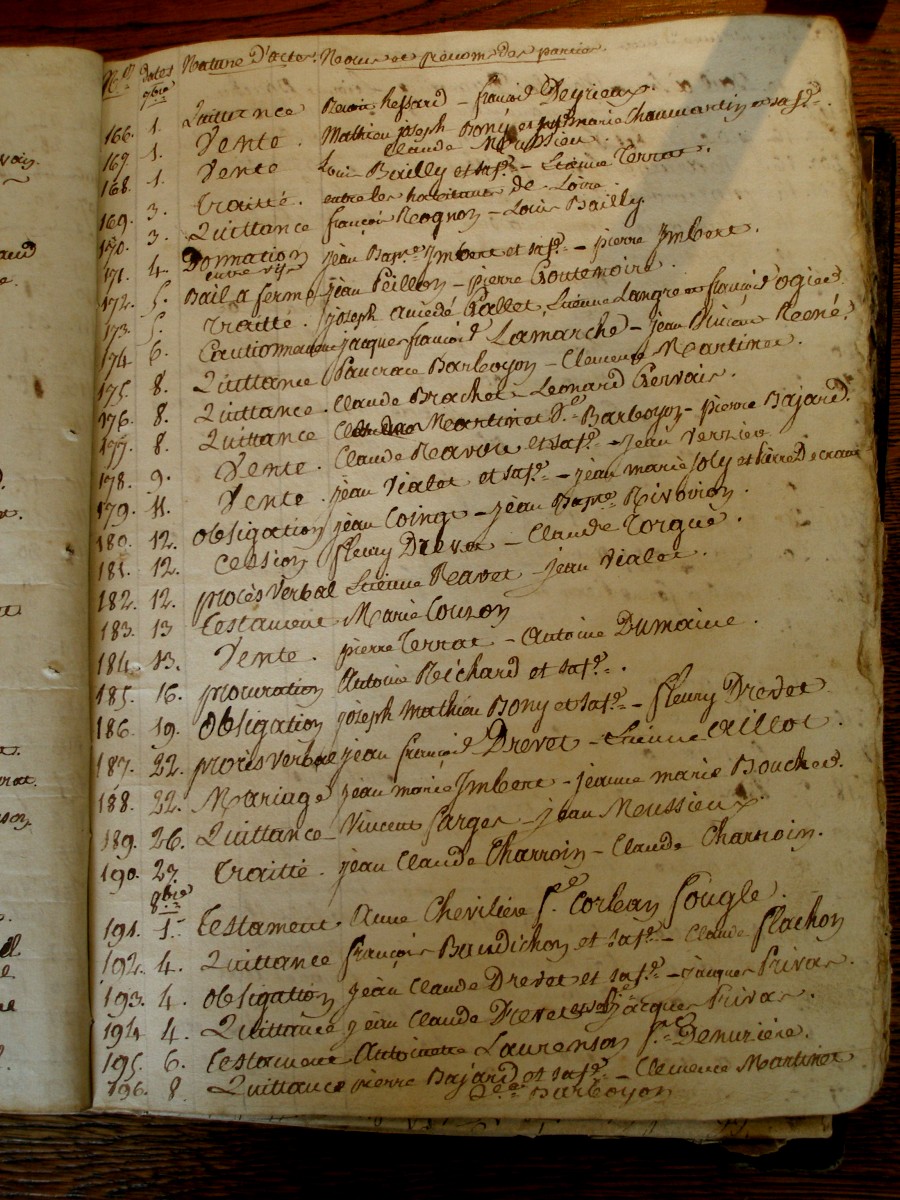 N.os dates Nature D'actes. Noms et prénoms des parties
7bre
166. 1. Quittance Benoit hessard - françois Deyrieux.
167. 1. Vente. Mathieu joseph Bony et marie Chaumartin et sa fe.
Claude Meussieu
168. 1. Vente Louis Bailly et sa fe. - Etienne Terrat.
169. 3. traitté. entre les habitants de Loire.
170. 3. Quittance françois Rognon - Louis Bailly.
171. 4. Donnation jean Bapte. Imbert et sa fe. - pierre Imbert.
entre vifs
172. 5. Bail a ferme jean Peillon - pierre Goutenoire.
173. 5. traitté. joseph amédé Gallet, Etienne Langre et françois D'ogier.
174 6. Cautionnement jacques françois Lamarche - jean Vincent Remé.
175. 8. Quittance Pancrace Barboyon - Clemence Martinet.
176. 8. Quittance. Claude Brachet - Leonard Gervais.
177. 8. Quittance Martinet De. Barboyon - pierre Bajard.
178. 9. Vente. Claude Ravere et sa fe. - jean Verzier
179. 11. Vente. jean Vialet et sa fe. - jean marie joly et pierre Decraux
180. 12. obligation jean Coinge - jean Bapte Rivoiron.
181. 12. Cession fleury Drevet - Claude Torgue.
182. 12. procès verbal Etienne Ravet - jean Vialet.
183. 13 testament Marie Couzon
184. 13. Vente. pierre Terrat - Antoine Dumaine.
185. 16. procuration Antoine Reichard et sa fe.
186. 19. obligation joseph Mathieu Bony et sa fe. - fleury Drevet
187. 22. procès verbal jean françois Drevet - Etienne Aillot.
188. 22. Mariage jean marie Imbert - jeanne marie Boucher.
189. 26. Quittance - Vincent farges - jean Meussieux.
190. 27. traitté. jean Claude Charroin - Claude Charroin.
8bre
191. 1. testament anne Chevilière fe. Corbean fougle.
192. 4. Quittance françois Baudichon et sa fe. - Claude flachon
193. 4. obligation jean Claude Drevet et sa fe. - jacques Privas.
194 4. Quittance jean Claude Drevet et sa fe jacques Privas.
195. 6. testament Antoinette Laurenson fe. Demurière.
196. 8 Quittance pierre Bajard et sa fe. - Clemence Martinet
De. Barboyon